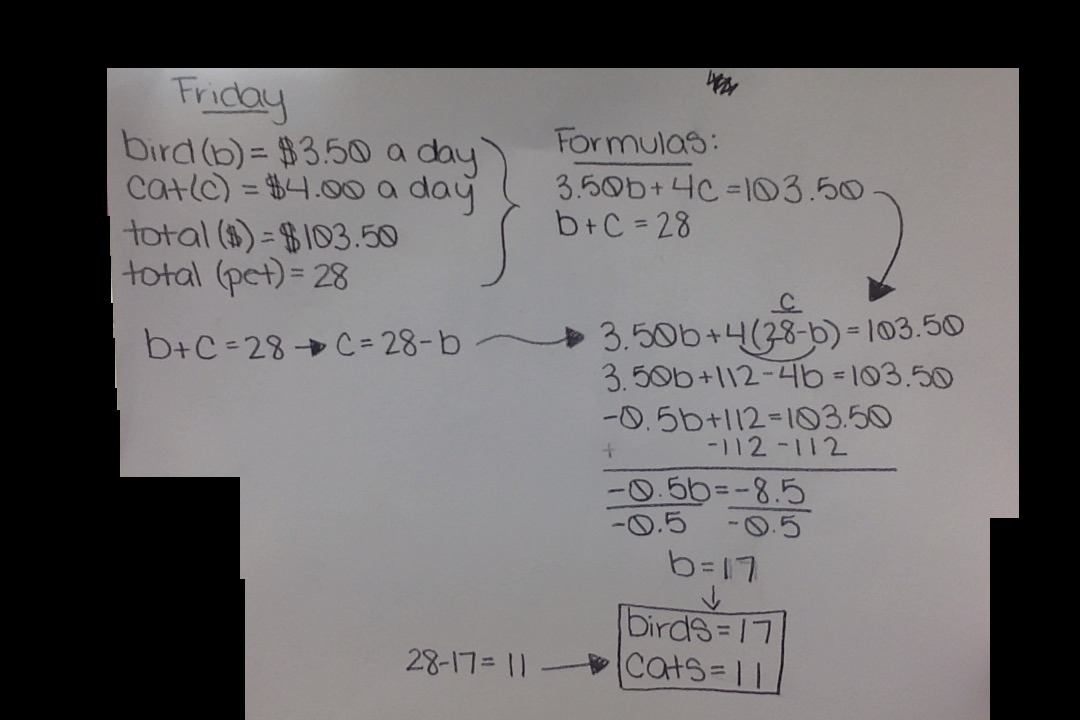 Friday
bird(b) = $3.50 a day
cat(c) = $4.00 a day
total ($) = $103.50
total (pet) = 28
Formulas:
3.50b + 4c = 103.50
b + c = 28
b + c = 28 → c = 28 - b
c
3.50b + 4(28 - b) = 103.50
3.50b + 112 - 4b = 103.50
-0.5b + 112 = 103.50
+ -112 -112
-0.5b = -8.5
-0.5 -0.5
b = 17
↓
birds = 17
28 - 17 = 11 → cats = 11